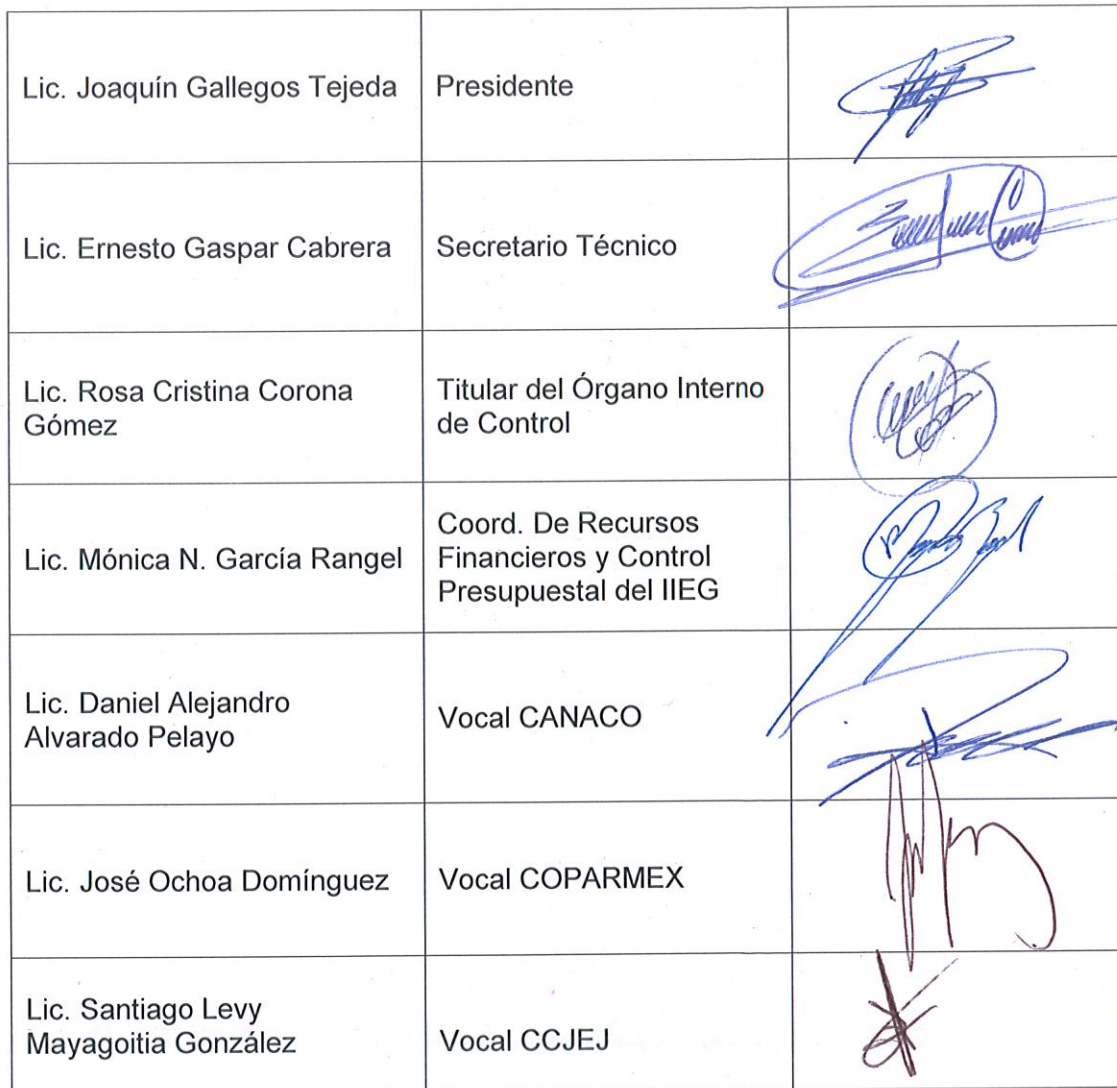 Lic. Joaquín Gallegos Tejeda
Presidente
Lic. Ernesto Gaspar Cabrera
Secretario Técnico
Lic. Rosa Cristina Corona
Gómez
Titular del Órgano Interno
de Control
Lic. Mónica N. García Rangel
Coord. De Recursos
Financieros y Control
Presupuestal del IIEG
Lic. Daniel Alejandro
Alvarado Pelayo
Vocal CANACO
Lic. José Ochoa Domínguez
Vocal COPARMEX
Lic. Santiago Levy
Mayagoitia González
Vocal CCJEJ